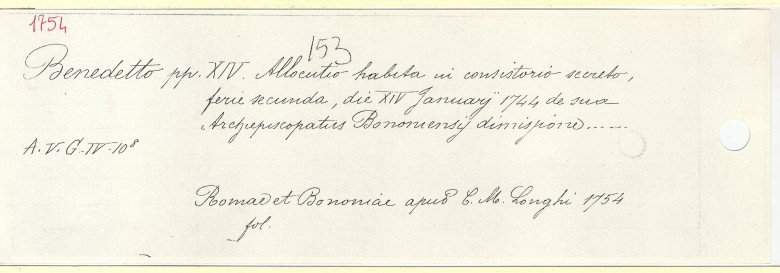 1754
153
Benedetto pp. XIV. Allocutio habita in consistorio secreto,
ferie secunda, die XIV Januarij 1744 de sua
Archiepiscopatus Bononiensij dimissione......
A. V. G-IV-10⁸
Romae et Bononiae apud C. M. Longhi 1754
fol.